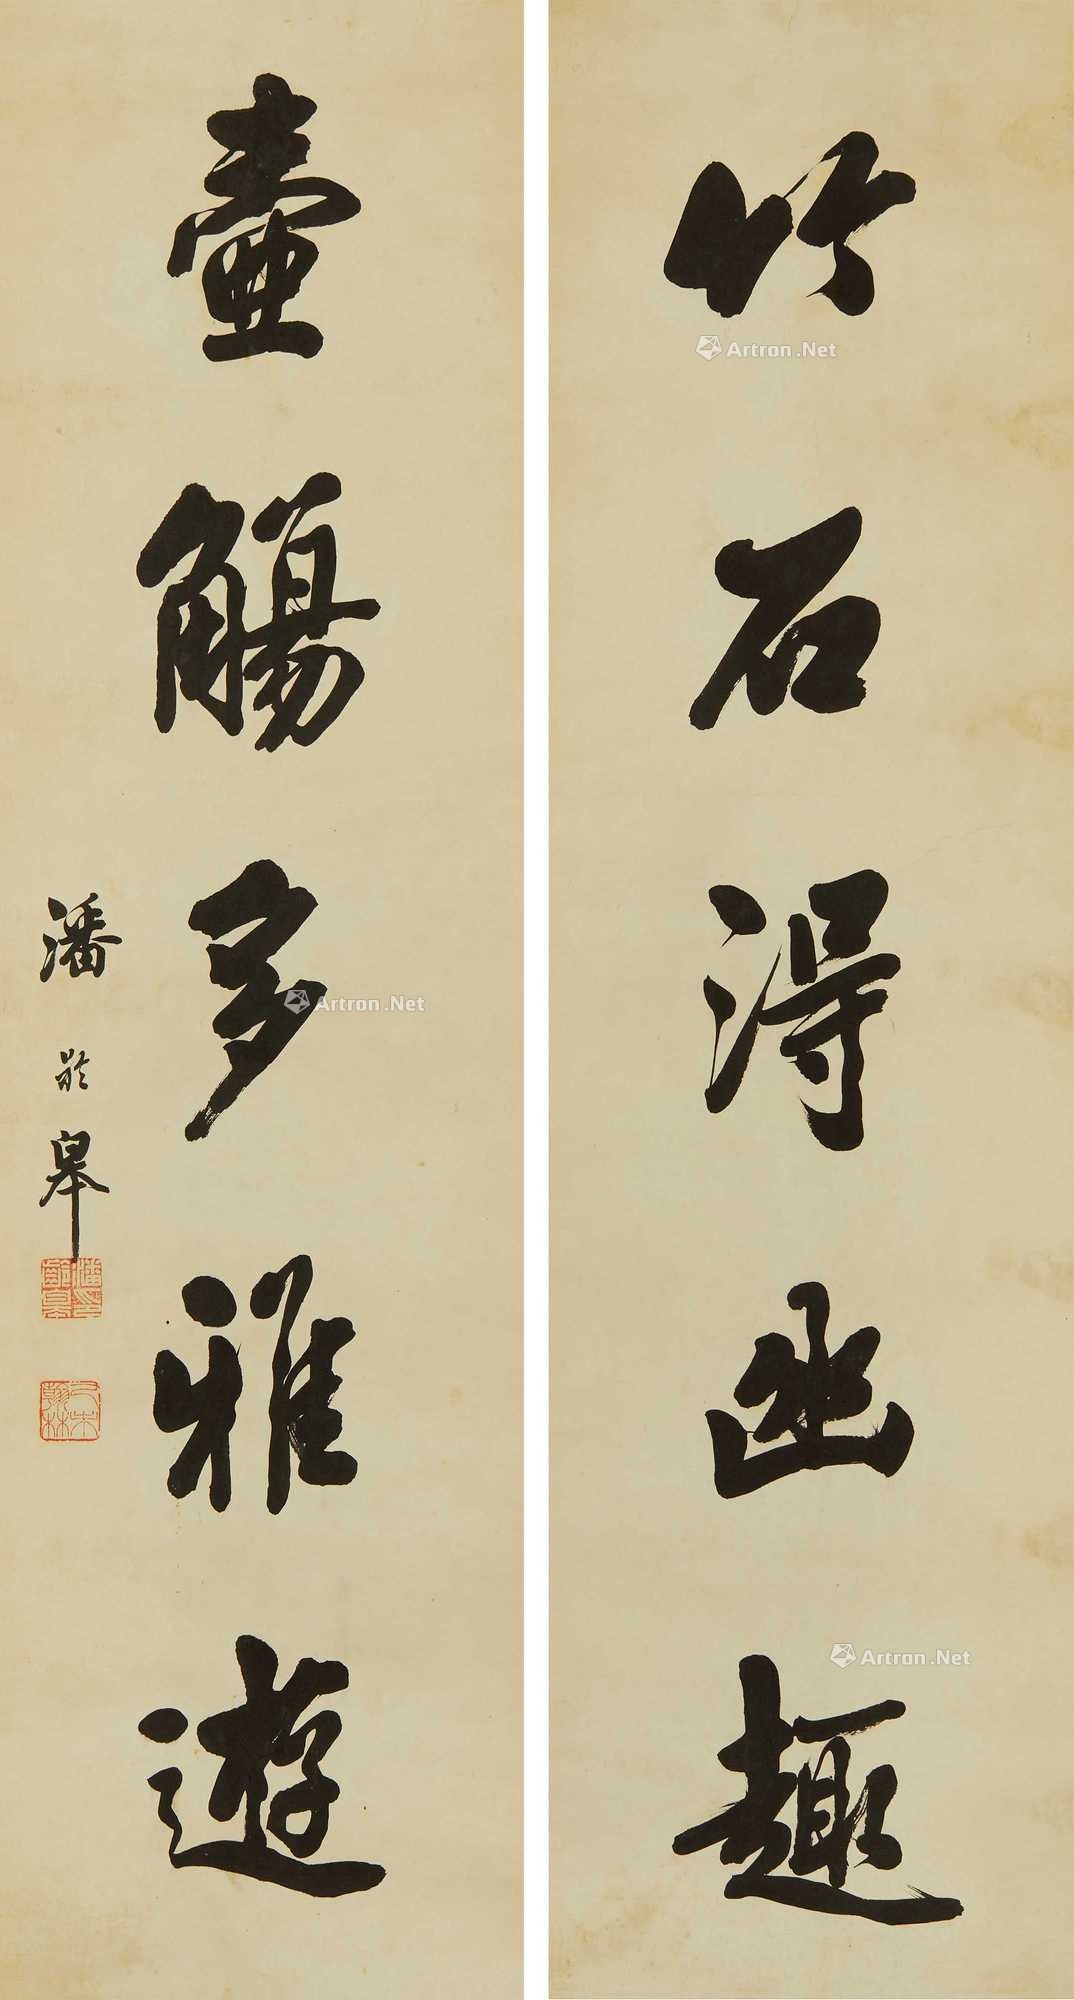 竹石得幽趣
壺觴多雅遊
潘齡皋
潘齡皋印
Artron.Net
Artron.Net
Artron.Net